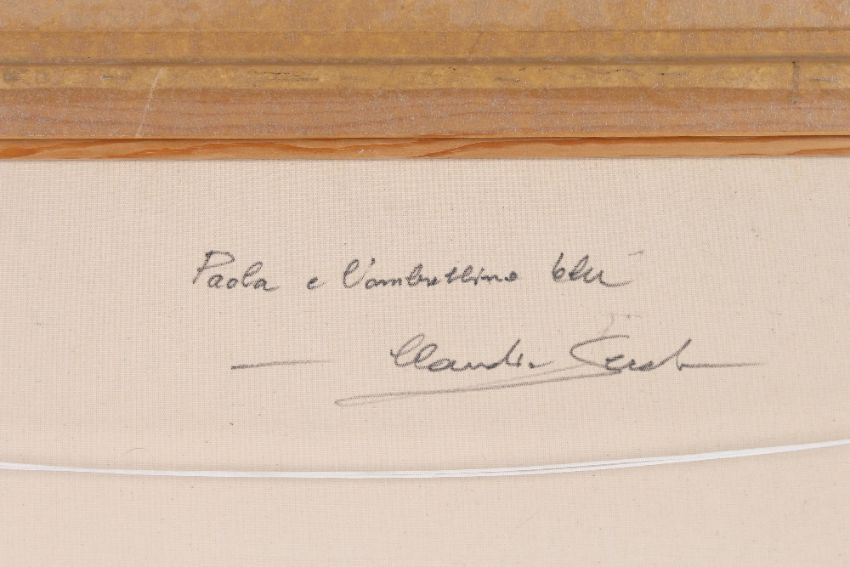 Paola e l'ombrellino blu
Claudio